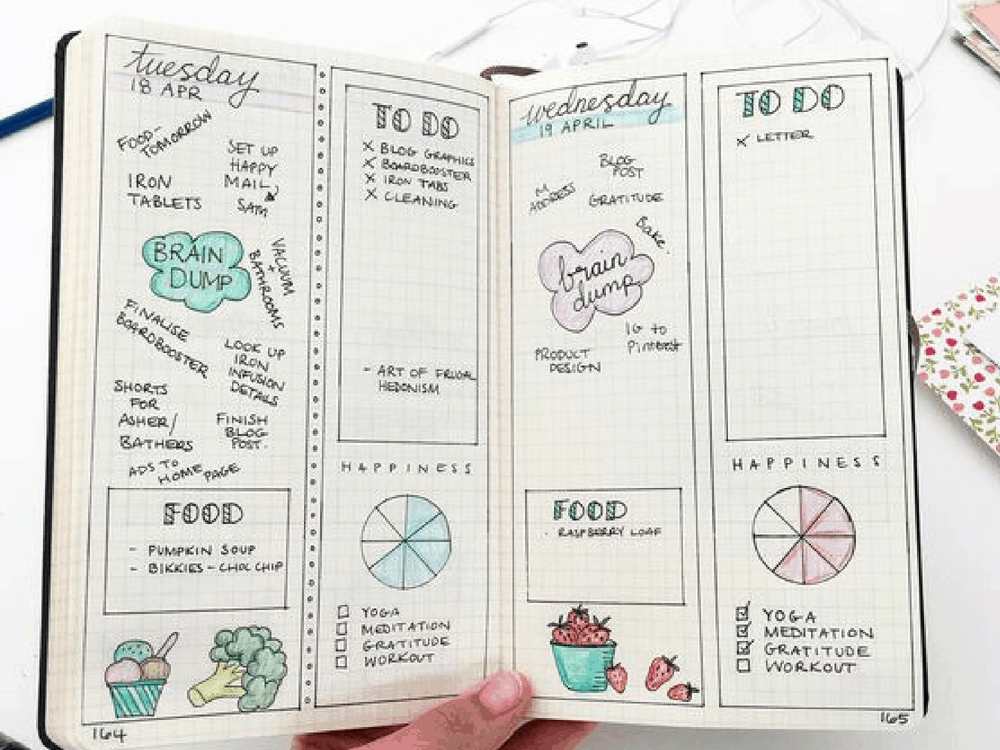 tuesday
18 APR
FOOD-
TOMORROW
SET UP
HAPPY
MAIL,
SATH
IRON
TABLETS
BRAIN
DUMP
VACUUM
+
BATHROOMS
FINALISE
BOARDBOOSTER
LOOK UP
IRON
INFUSION
DETAILS
SHORTS
FOR
ASHER/
BATHERS
FINISH
BLOG
POST.
ADS TO
HOME PAGE
FOOD
- PUMPKIN SOUP
- BIKKIES - CHOC CHIP
164
TO DO
X BLOG GRAPHICS
X BOARDBOOSTER
X IRON TABS
X CLEANING
- ART OF FRUGAL
HEDONISM
HAPPINESS
YOGA
MEDITATION
GRATITUDE
WORKOUT
wednesday
19 APRIL
BLOG
POST
M
ADDRESS
GRATITUDE
Bake.
brain
dump
IG to
Pinterest
PRODUCT
DESIGN
FOOD
- RASPBERRY LOAF
TO DO
X LETTER
HAPPINESS
YOGA
MEDITATION
GRATITUDE
WORKOUT
165